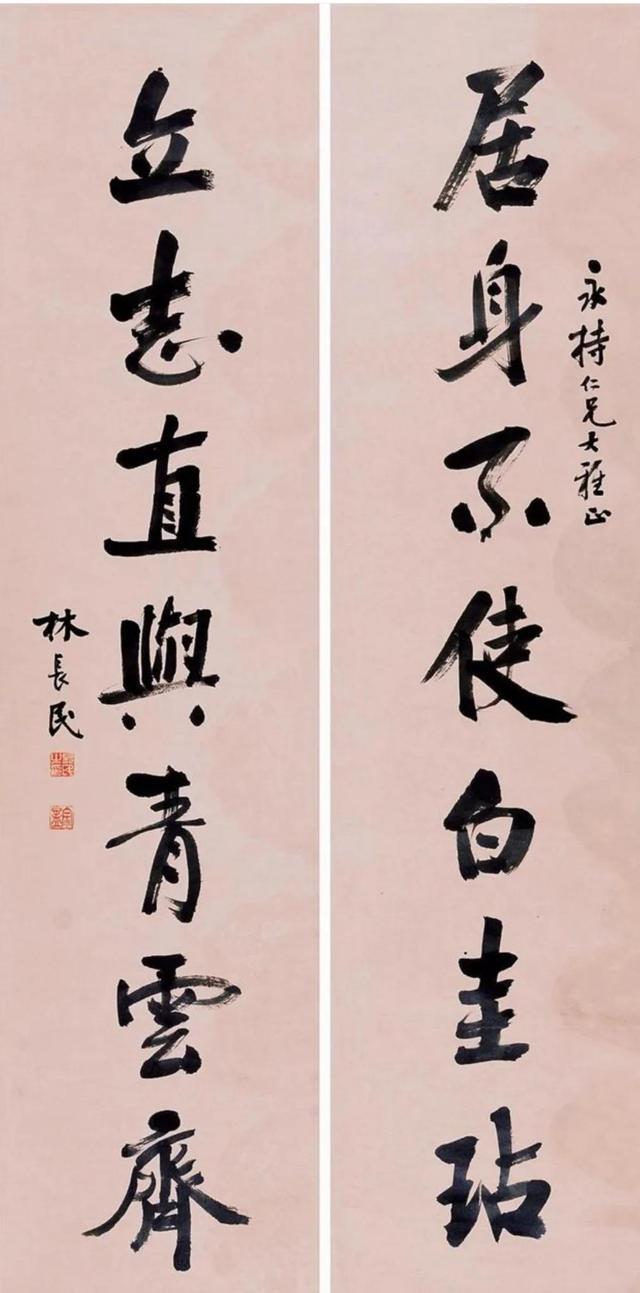 永持仁兄大雅正
居身不使白圭玷
立志直與青雲齊
林長民